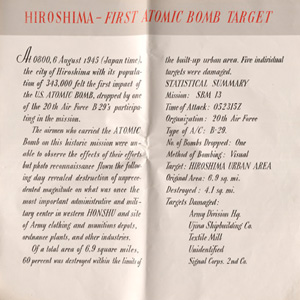 HIROSHIMA - FIRST ATOMIC BOMB TARGET
At 0800, 6 August 1945 (Japan time),
the city of Hiroshima with its popula-
tion of 343,000 felt the first impact of
the U.S. ATOMIC BOMB, dropped by one
of the 20th Air Force B-29's participa-
ting in the mission.
The airmen who carried the ATOMIC
Bomb on this historic mission were un-
able to observe the effects of their efforts
but photo reconnaissance flown the follow-
ing day revealed destruction of unpre-
cedented magnitude on what was once the
most important administrative and mili-
tary center in western HONSHU and site
of Army clothing and munitions depots,
ordnance plants, and other industries.
Of a total area of 6.9 square miles,
60 percent was devastated within the limits of
the built-up urban area. Five individual
targets were damaged.
STATISTICAL SUMMARY
Mission: SBM 13
Time of Attack: 052315Z
Organization: 20th Air Force
Type of A/C: B-29.
No. of Bombs Dropped: One
Method of Bombing: Visual
Target: HIROSHIMA URBAN AREA
Original Area: 6.9 sq. mi.
Destroyed: 4.1 sq. mi.
Targets Damaged:
Army Division Hq.
Ujina Shipbuilding Co.
Textile Mill
Unidentified
Signal Corps. 2nd Co.